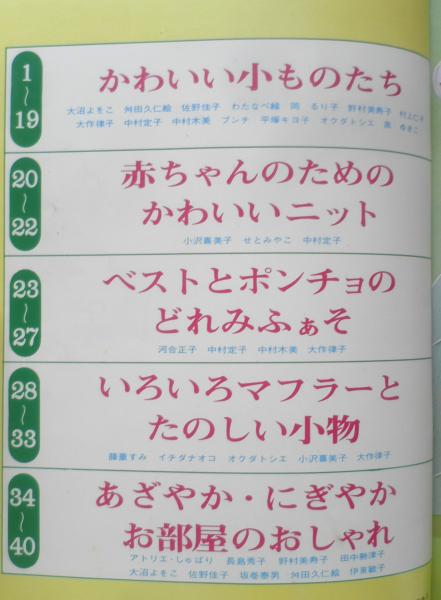 1〜19
かわいい小ものたち
大沼よをこ 舛田久仁絵 佐野佳子 わたなべ緑 岡 るり子 野村美寿子
大作律子 中村定子 中村木美 プンチ 平塚キヨ子 オクダトシエ
20〜22
赤ちゃんのための
かわいいニット
小沢喜美子 せとみやこ 中村定子
23〜27
ベストとポンチョの
どれみふぁそ
河合正子 中村定子 中村木美 大作律子
28〜33
いろいろマフラーと
たのしい小物
藤重すみ イチダナオコ オクダトシエ 小沢喜美子 大作律子
34〜40
あざやか・にぎやか
お部屋のおしゃれ
アトリエ・しゅばり 長島秀子 野村美寿子 田中勢津子
大沼よをこ 佐野佳子 坂巻泰男 舛田久仁絵 伊東敏子